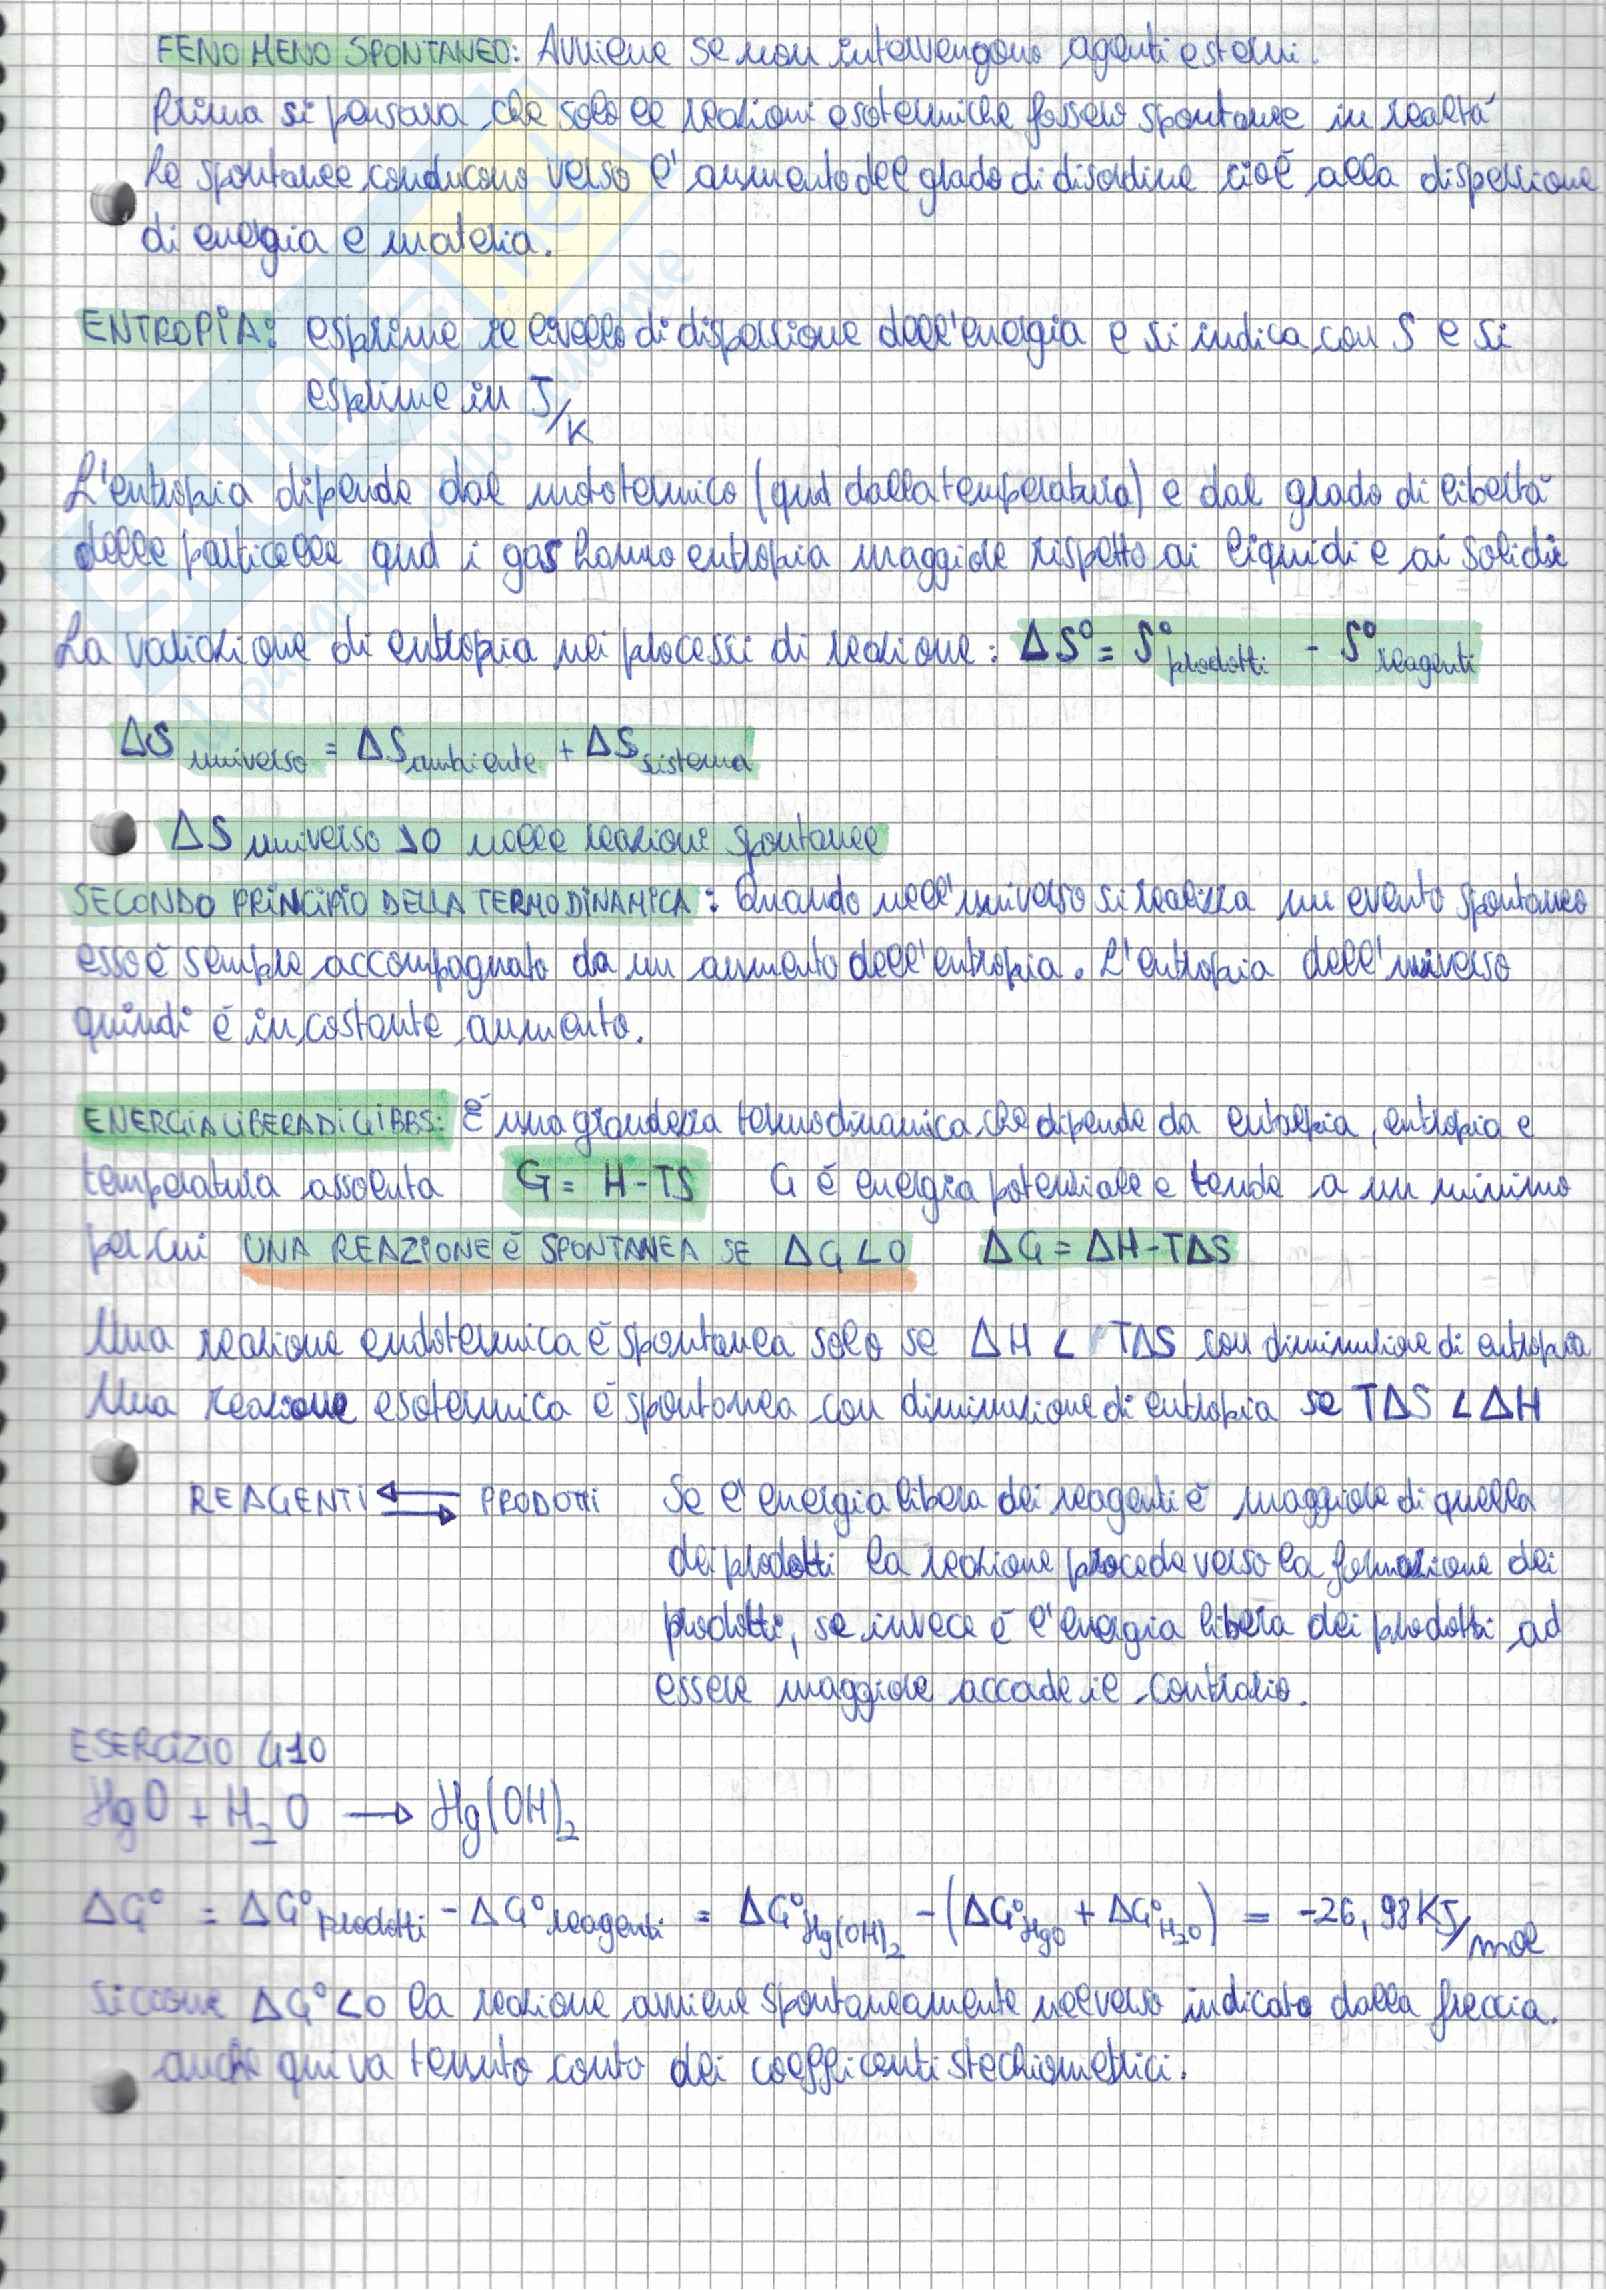 FENOMENO SPONTANEO: Avviene se non intervengono agenti esterni.
Prima si pensava che solo le reazioni esotermiche fossero spontanee in realtà
le spontanee conducono verso l'aumento del grado di disordine cioè alla dispersione
di energia e materia.
ENTROPIA: esprime il livello di dispersione dell'energia e si indica con S e si
esprime in J/K
L'entropia dipende dal moto termico (quind dalla temperatura) e dal grado di libertà
delle particelle quind i gas hanno entropia maggiore rispetto ai liquidi e ai solidi
La variazione di entropia nei processi di reazione: ΔS° = S°prodotti - S°reagenti
ΔS universo = ΔS ambiente + ΔS sistema
ΔS universo >0 nelle reazione spontanee
SECONDO PRINCIPIO DELLA TERMODINAMICA: Quando nell'universo si realizza un evento spontaneo
esso è sempre accompagnato da un aumento dell'entropia. L'entropia dell'universo
quindi è in costante aumento.
ENERGIA LIBERA DI GIBBS: È una grandezza termodinamica che dipende da entalpia, entropia e
temperatura assoluta G = H-TS G è energia potenziale e tende a un minimo
per cui UNA REAZIONE È SPONTANEA SE ΔG<0 ΔG = ΔH-TΔS
Una reazione endotermica è spontanea solo se ΔH < TΔS con diminuzione di entropia
Una reazione esotermica è spontanea con diminuzione di entropia se TΔS < ΔH
REAGENTI ⇄ PRODOTTI Se l'energia libera dei reagenti è maggiore di quella
dei prodotti la reazione procede verso la formazione dei
prodotti, se invece è l'energia libera dei prodotti ad
essere maggiore accade il contrario.
ESERCIZIO 410
HgO + H₂O → Hg(OH)₂
ΔG° = ΔG°prodotti - ΔG°reagenti = ΔG°Hg(OH)₂ - (ΔG°HgO + ΔG°H₂O) = -26,98 KJ/mol
Siccome ΔG°<0 la reazione avviene spontaneamente nel verso indicato dalla freccia.
anche qui va tenuto conto dei coefficenti stechiometrici.